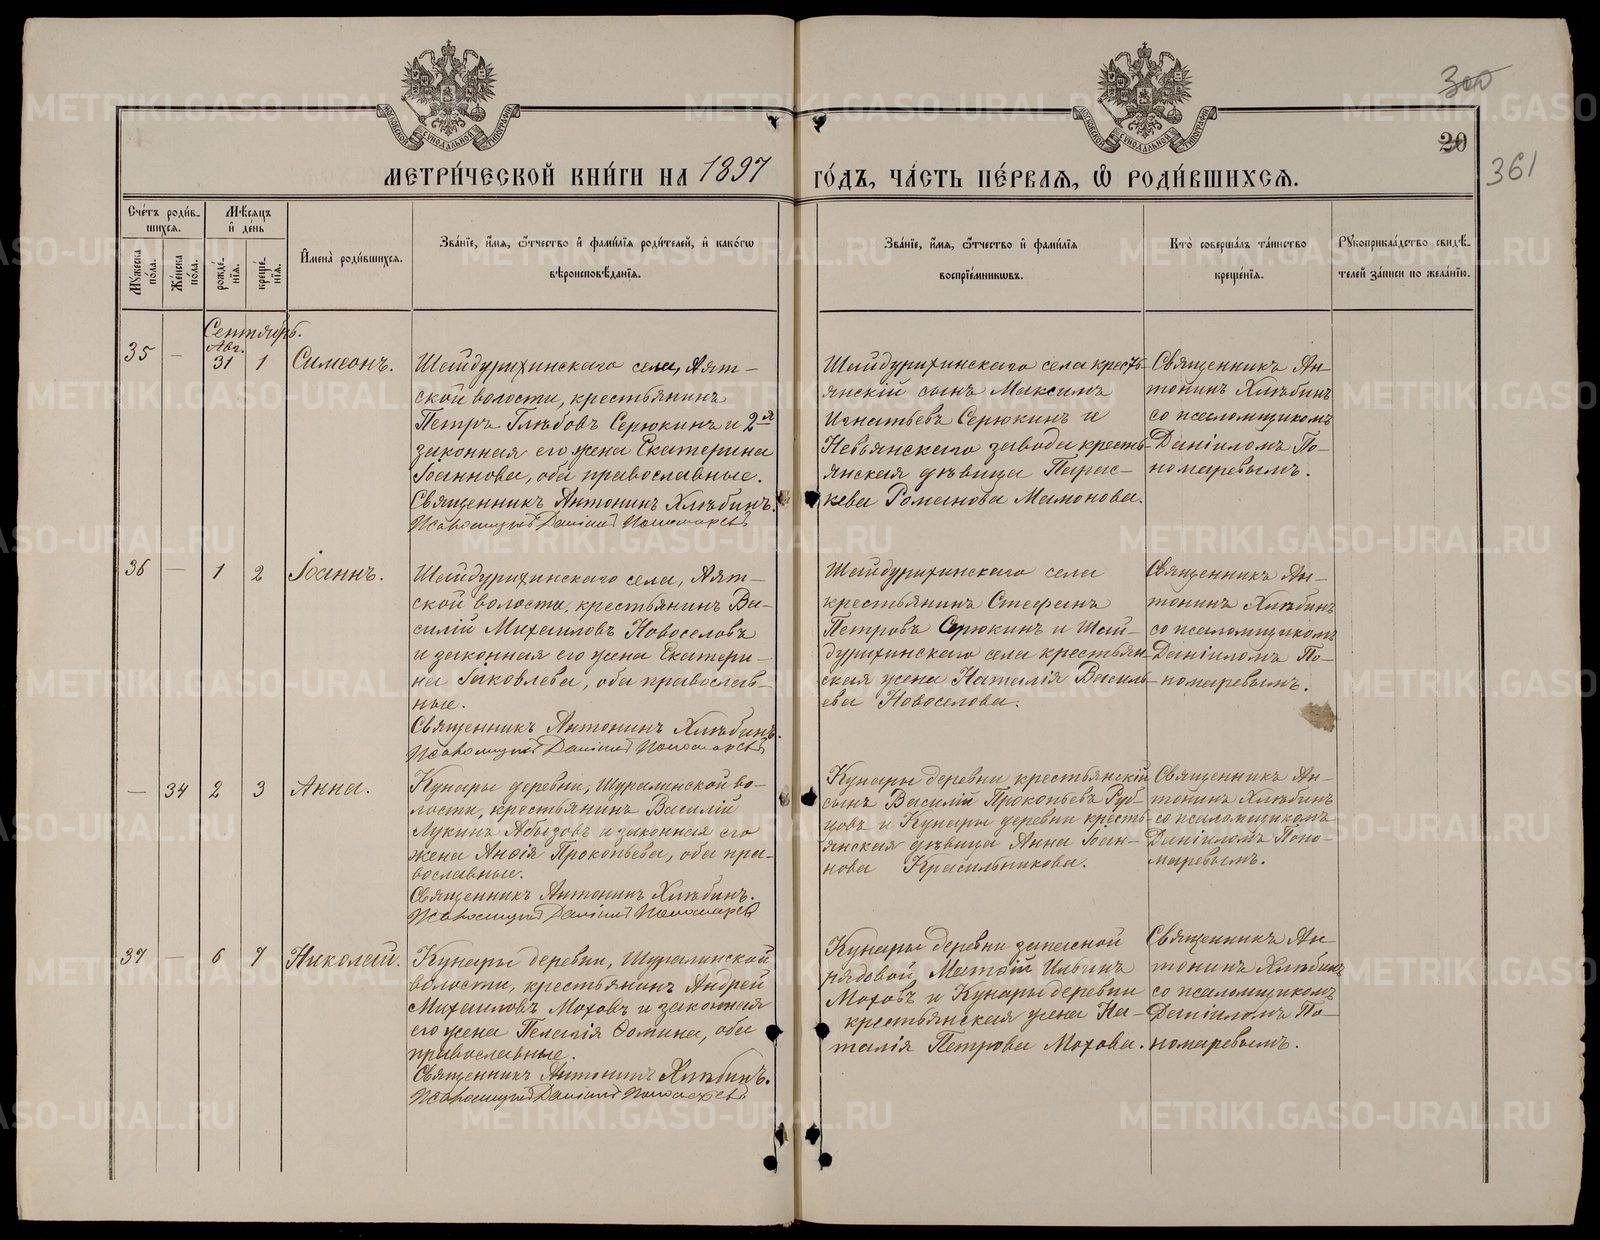 300
20
361
МЕТРИ́ЧЕСКОЙ КНИ́ГИ НА 1897 ГО́ДЪ, ЧА́СТЬ ПЕ́РВАЯ, Ѡ РОДИ́ВШИХСЯ.
Сче́тъ роди́в-
шихся.
Мѣ́сяцъ
и҆ де́нь
Мꙋ́жеска
по́ла.
Же́нска
по́ла.
рожде́-
нїя.
креще́-
нїя.
И҆мена̀ роди́вшихся.
Зва́нїе, и҆́мя, ѻ҆́тчество и҆ фами́лїя роди́телей, и҆ како́гѡ
вѣроисповѣ́данїя.
Зва́нїе, и҆́мя, ѻ҆́тчество и҆ фами́лїя
воспрїе́мниковъ.
Кто̀ соверша́лъ та́инство
креще́нїя.
Рꙋкоприкла́дство свидѣ́-
телей за́писи по жела́нїю.
Сентябрь.
Авг.
35 — 31 1 Симеонъ.
Шайдурихинскаго села, Аят-
ской волости, крестьянинъ
Петръ Глѣбовъ Серюкинъ и 2я
законная его жена Екатерина
Іоаннова, оба православные.
Священникъ Антонинъ Хлѣбинъ.
Псаломщикъ Даніилъ Пономаревъ
Шайдурихинскаго села кресть-
янскій сынъ Максимъ
Игнатьевъ Серюкинъ и
Невьянскаго завода кресть-
янская дѣвица Парас-
кева Романова Мамонова.
Священникъ Ан-
тонинъ Хлѣбинъ
со псаломщикомъ
Даніиломъ По-
номаревымъ.
36 — 1 2 Іоаннъ.
Шайдурихинскаго села, Аят-
ской волости, крестьянинъ Ва-
силій Михаиловъ Новоселовъ
и законная его жена Екатери-
на Іаковлева, оба православ-
ные.
Священникъ Антонинъ Хлѣбинъ.
Псаломщикъ Даніилъ Пономаревъ
Шайдурихинскаго села
крестьянинъ Стефанъ
Петровъ Серюкинъ и Шай-
дурихинскаго села крестьян-
ская жена Наталія Василь-
ева Новоселова.
Священникъ Ан-
тонинъ Хлѣбинъ
со псаломщикомъ
Даніиломъ По-
номаревымъ.
— 34 2 3 Анна.
Кунары деревни, Шуралинской во-
лости, крестьянинъ Василій
Лукинъ Абызовъ и законная его
жена Анѳія Прокопьева, оба пра-
вославные.
Священникъ Антонинъ Хлѣбинъ.
Псаломщикъ Даніилъ Пономаревъ
Кунары деревни крестьянскій
сынъ Василій Прокопьевъ Руб-
цовъ и Кунары деревни кресть-
янская дѣвица Анна Іоан-
нова Красильникова.
Священникъ Ан-
тонинъ Хлѣбинъ
со псаломщикомъ
Даніиломъ Поно-
маревымъ.
37 — 6 7 Николай.
Кунары деревни, Шуралинской
волости, крестьянинъ Андрей
Михаиловъ Моховъ и законная
его жена Пелагія Ѳомина, оба
православные.
Священникъ Антонинъ Хлѣбинъ.
Псаломщикъ Даніилъ Пономаревъ
Кунары деревни запасной
рядовой Матѳій Ильинъ
Моховъ и Кунары деревни
крестьянская жена На-
талія Петрова Мохова.
Священникъ Ан-
тонинъ Хлѣбинъ
со псаломщикомъ
Даніиломъ По-
номаревымъ.
METRIKI.GASO-URAL.RU